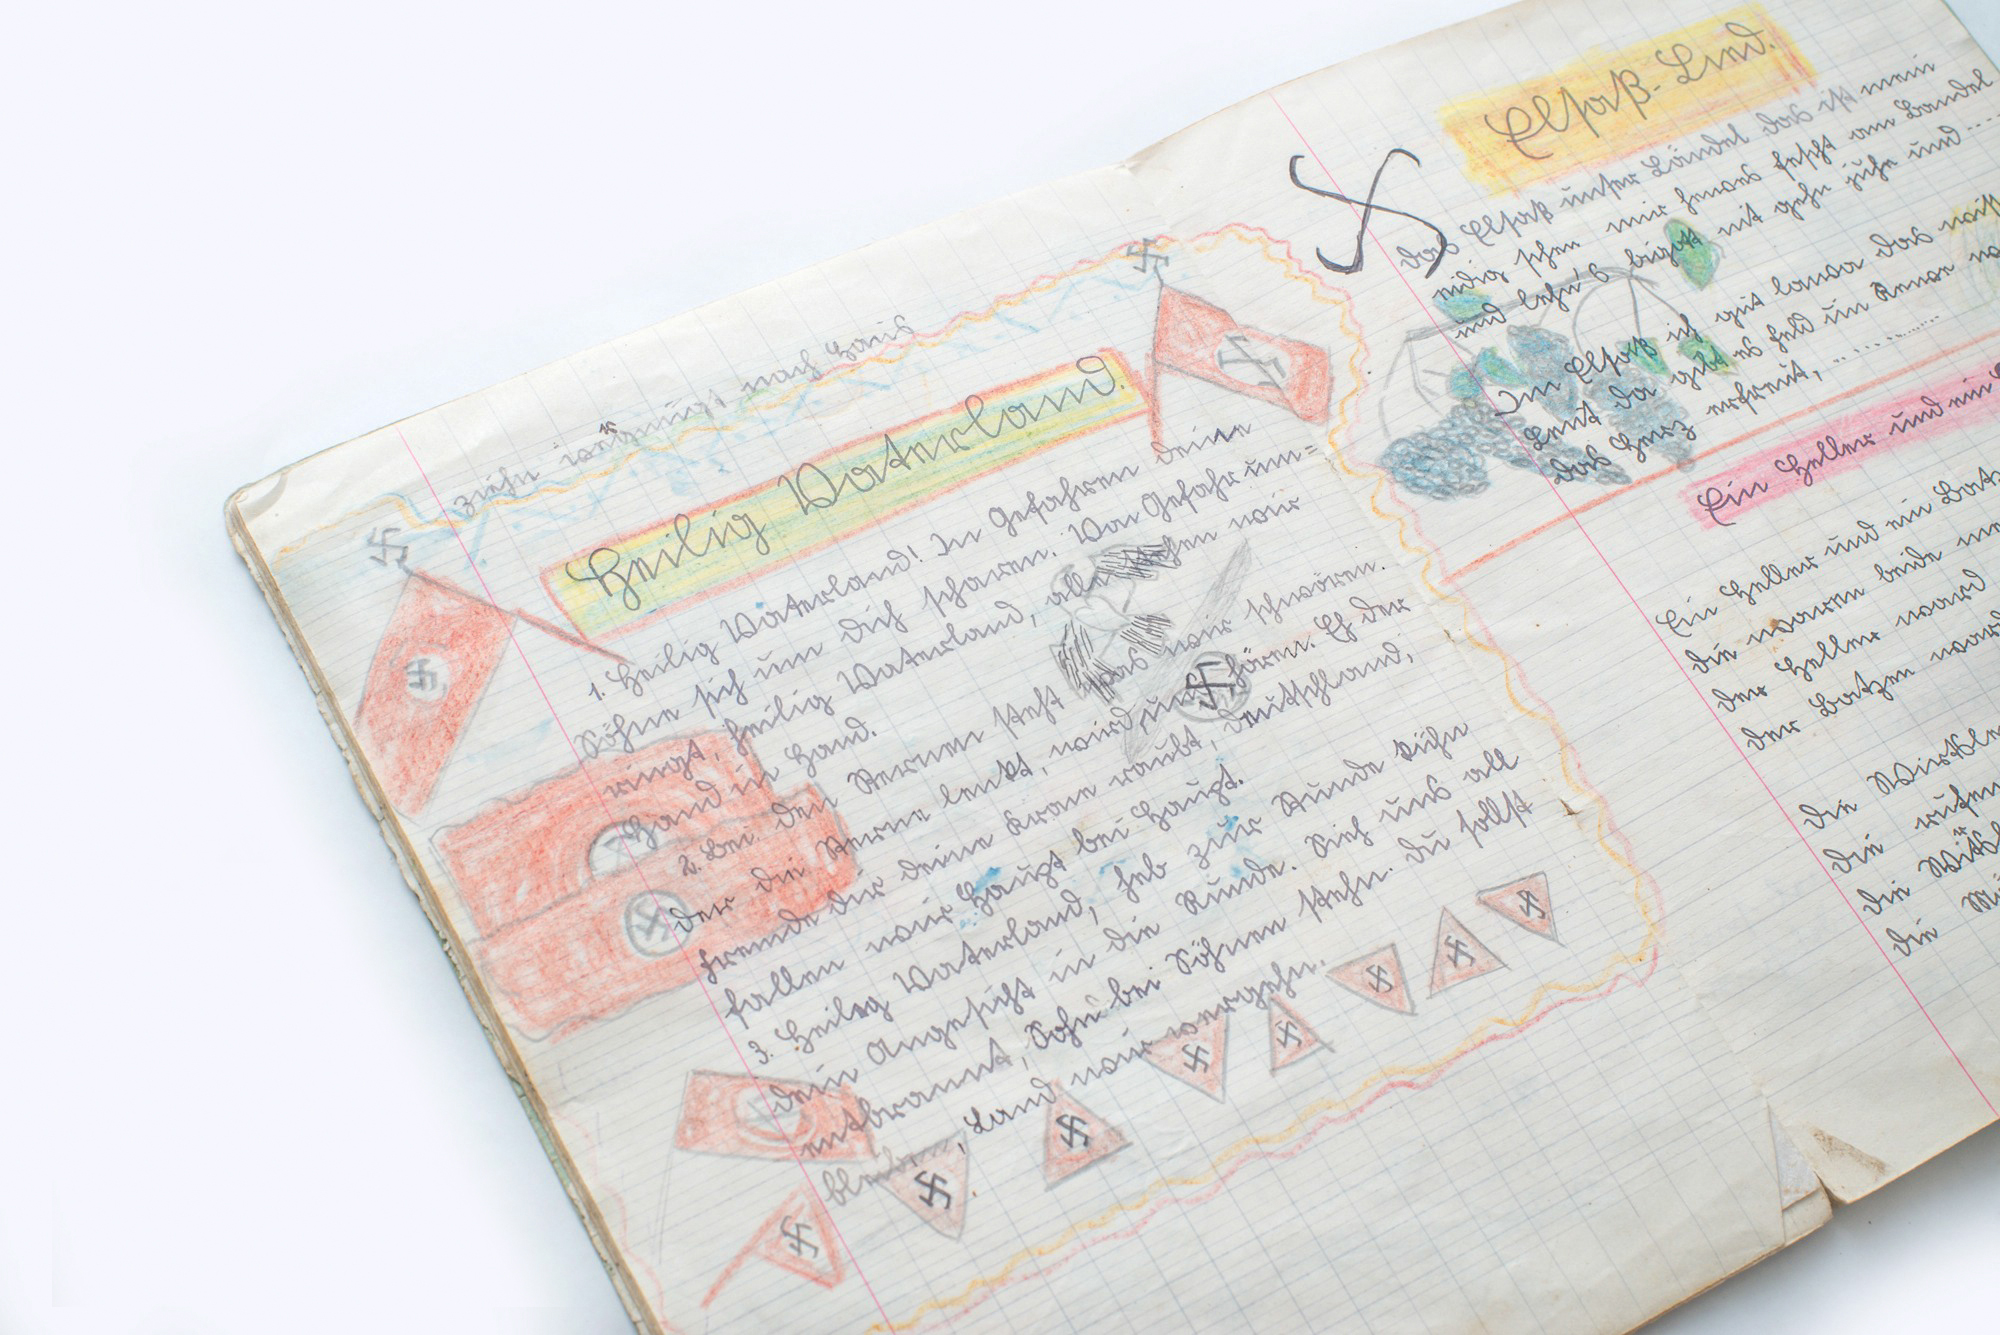 ziehn vergnügt nach Haus
Heilig Vaterland.
1. Heilig Vaterland! In Gefahren deine
Söhne sich um dich scharen. Von Gefahr um=
ringt, heilig Vaterland, alle stehen wir
Hand in Hand.
2. Bei den Sternen steht was wir schwören.
Der die Sterne lenkt, wird uns hören. Eh der
Fremde dir deine Krone raubt, Deutschland,
fallen wir Haupt bei Haupt.
3. Heilig Vaterland, heb zur Stunde kühn
dein Angesicht in die Runde. Sieh uns all
entbrannt, Sohn bei Söhnen stehn. Du sollst
bleiben, Land wir vergehn.
Elsaß-Lied.
Das Elsaß unser Ländel das ist mein
eidig schen mir hewes fescht am Bandel
und lehn's bigott nit gehn juhe und ....
Im Elsaß isch gut
Leut da gibt es Feld un Rewe
das Herz erfreit, ............
Ein Heller und ein
Ein Heller und ein Batz
Die waren beide
Der Heller ward
Der Batzen ward
Die Wirtsle
Die rufen
Die
Die